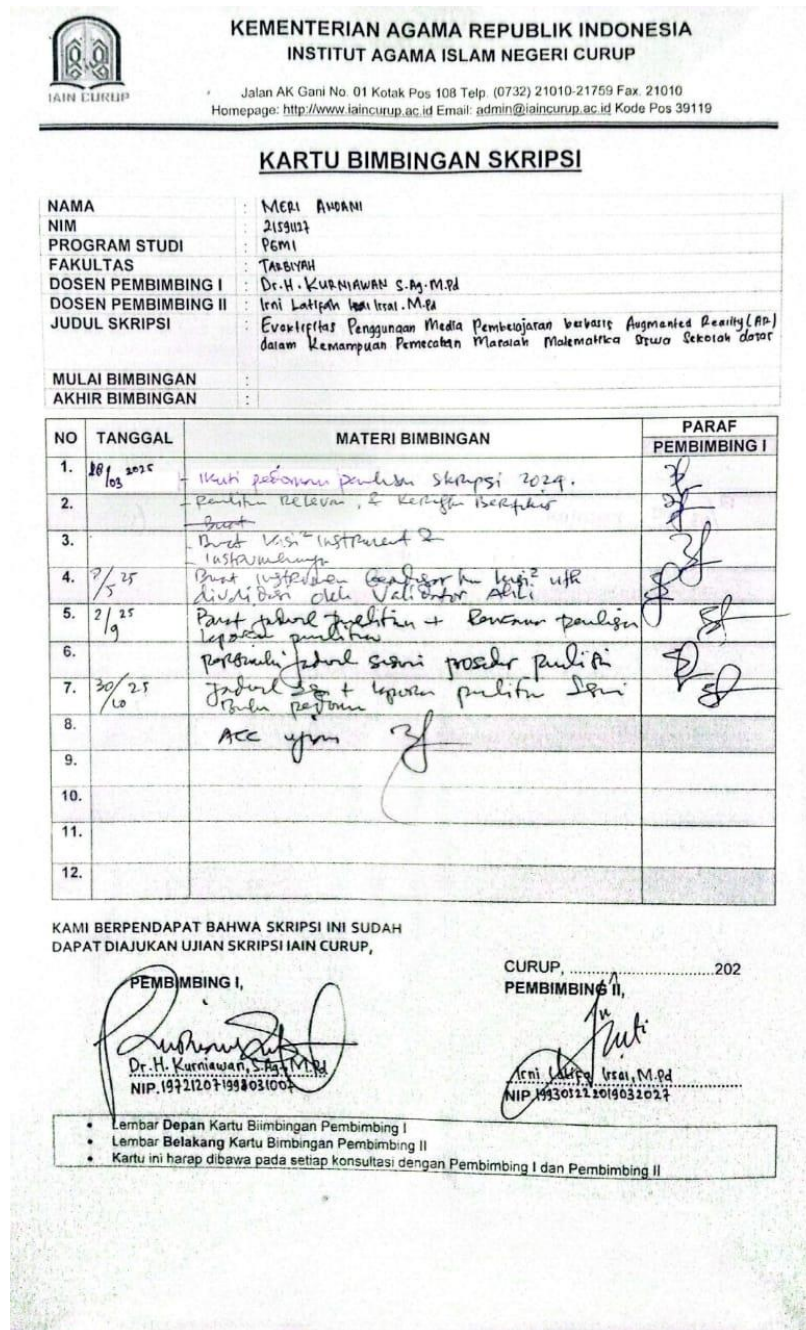 KEMENTERIAN AGAMA REPUBLIK INDONESIA
INSTITUT AGAMA ISLAM NEGERI CURUP
IAIN CURUP
Jalan AK Gani No. 01 Kotak Pos 108 Telp. (0732) 21010-21759 Fax. 21010
Homepage: http://www.iaincurup.ac.id Email: admin@iaincurup.ac.id Kode Pos 39119
KARTU BIMBINGAN SKRIPSI
NAMA : MERI ANDANI
NIM :
PROGRAM STUDI : PGMI
FAKULTAS : TARBIYAH
DOSEN PEMBIMBING I : Dr. H. KURNIAWAN S.Ag. M.Pd
DOSEN PEMBIMBING II : Irni Latifah Irsal. M.Pd
JUDUL SKRIPSI : Penggunaan Media Pembelajaran berbasis Augmented Reality (AR)
dalam Kemampuan Pemecahan Masalah Matematika Siswa Sekolah dasar
MULAI BIMBINGAN :
AKHIR BIMBINGAN :
NO TANGGAL MATERI BIMBINGAN PARAF
PEMBIMBING I
1. 28/03 2025 - Ikuti pedoman penulisan skripsi 2024.
2. - Relevan, & Berfikir
3. - Buat Kisi² Instrument
- Instrumennya
4. 25 Buat instrumen kisi² utk
oleh Validator Ahli
5. 2/9 25 jadwal penelitian +
laporan penelitian
6. jadwal sesuai penelitian
7. 30/10 25 + laporan
8. ACC ujian
9.
10.
11.
12.
KAMI BERPENDAPAT BAHWA SKRIPSI INI SUDAH
DAPAT DIAJUKAN UJIAN SKRIPSI IAIN CURUP,
CURUP, ..............................202
PEMBIMBING I,
PEMBIMBING II,
Dr. H. Kurniawan, S.Ag, M.Pd
NIP. 197212071998031007
Irni Latifa Irsal, M.Pd
NIP 199305222019032027
• Lembar Depan Kartu Biimbingan Pembimbing I
• Lembar Belakang Kartu Bimbingan Pembimbing II
• Kartu ini harap dibawa pada setiap konsultasi dengan Pembimbing I dan Pembimbing II